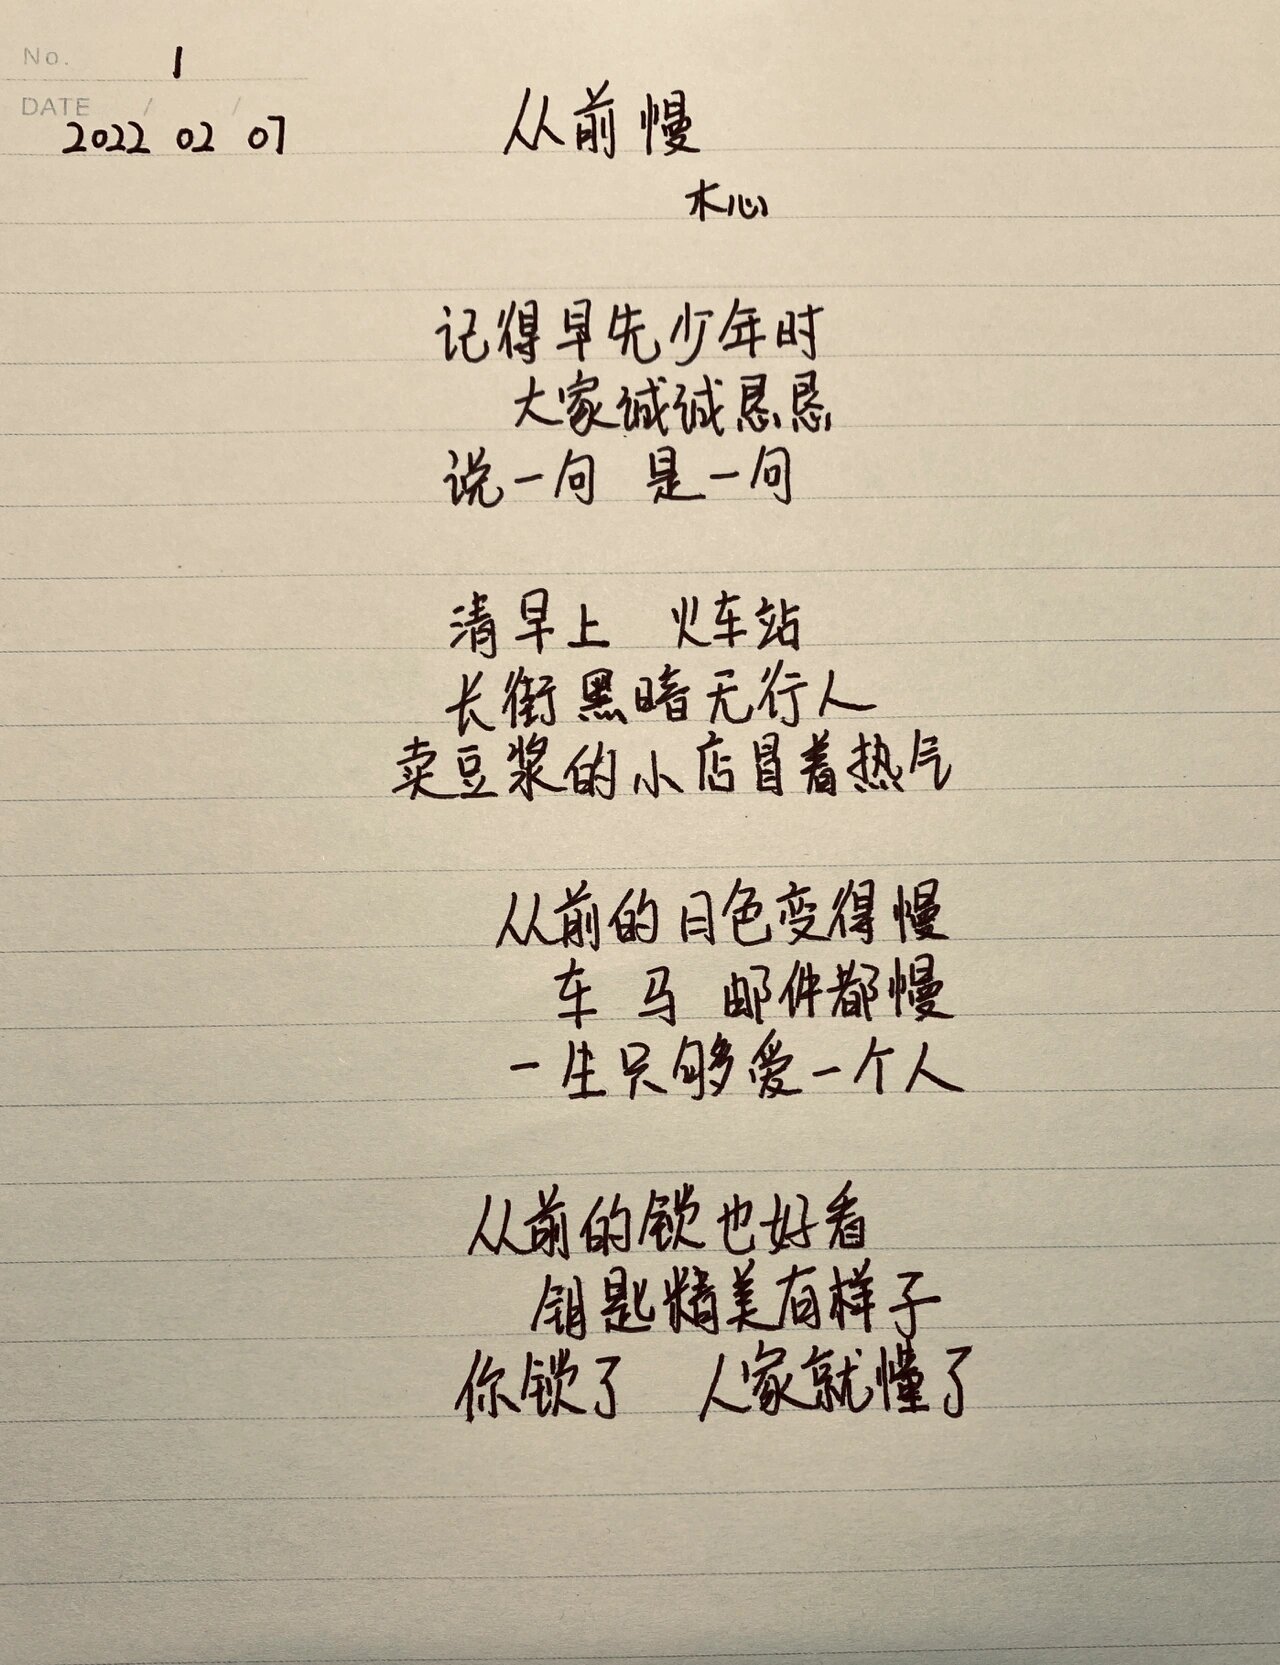 No. 1
DATE / /
2022 02 07
从前慢
木心
记得早先少年时
大家诚诚恳恳
说一句 是一句
清早上 火车站
长街黑暗无行人
卖豆浆的小店冒着热气
从前的日色变得慢
车 马 邮件都慢
一生只够爱一个人
从前的锁也好看
钥匙精美有样子
你锁了 人家就懂了